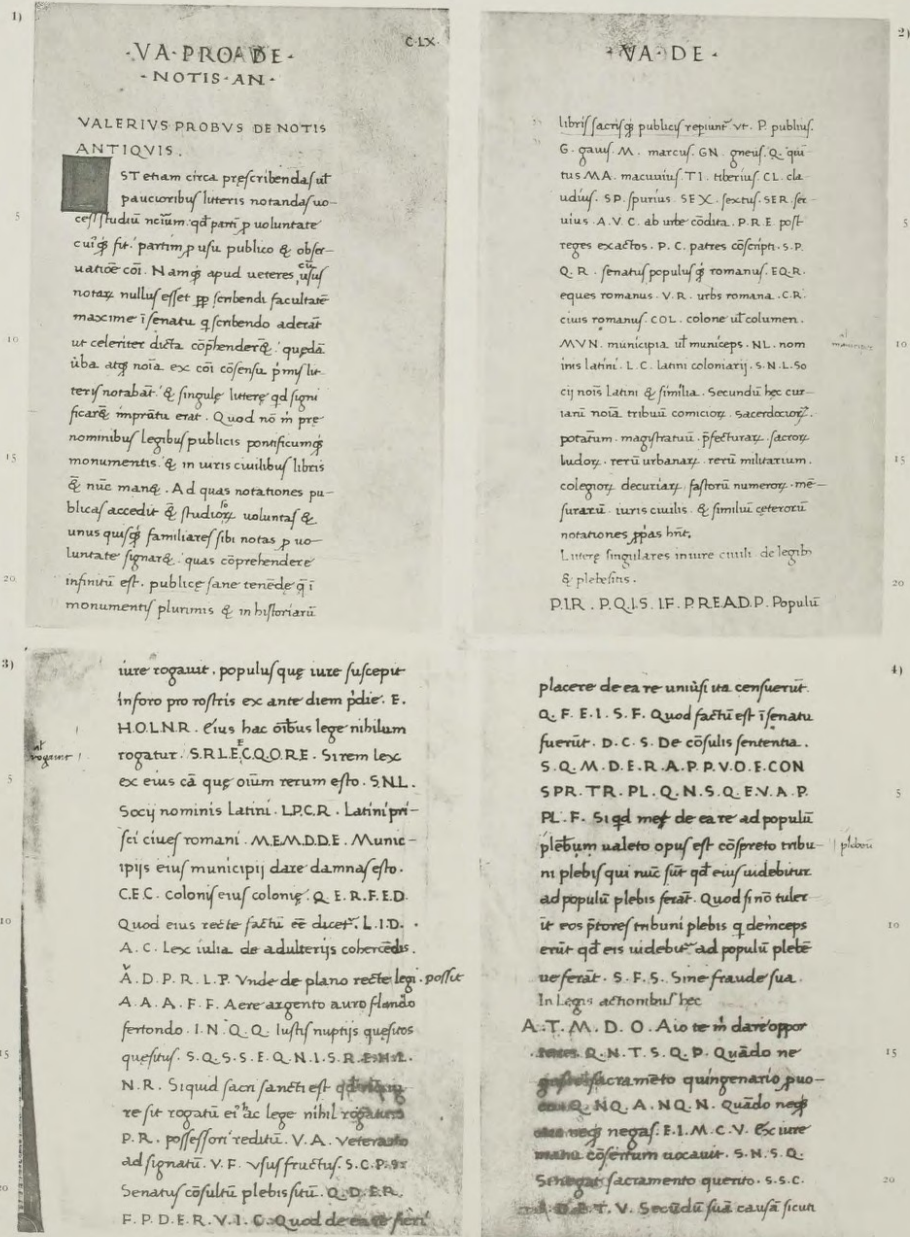 1)
C·LX·
·VA·PRO·DE·
·NOTIS·AN·
VALERIVS PROBVS DE NOTIS
ANTIQVIS.
EST etiam circa pręscribendas ut̄
paucioribus litteris notandas uo-
ces studiū nc̄iūm. qd̄ parti p uoluntate
cuiq3 fit. partim p usu publico & obser-
uatiōe cōi. Namq3 apud ueteres cū usus
notaꝝ nullus esset pp̄ scribendi facultatē
maxime ī senatu q scribendo aderāt
ut celeriter dicta cōp̄henderēt. quędā
ūba atq3 nōia ex cōi cōsensu p̄mis lit-
teris notabāt. & singulę litterę qd signi
ficarēt inprātu erat. Quod nō m̄ pre
nominibus legibus publicis pontificumq3
monumentis. & in iuris ciuilibus libris
& nūc manet. Ad quas notationes pu-
blicas accedit & studiosoꝝ uoluntas &
unus quisq3 familiares sibi notas p uo-
luntate signaret. quas cōprehendere
infinitū est. publicę sane tenēde q̄ ī
monumentis plurimis & in historiarū
5
10
15
20
2)
·VA·DE·
libris sacrisq3 publicis repiunt̄ vt. P. publius.
G. gaius. M. marcus. GN. gneus. Q. quī
tus MA. macuuius. TI. tiberius. CL. cla
udius. SP. spurius. SEX. sextus. SER. ser
uius. A.V.C. ab urbe cōdita. P.R.E. post
reges exactos. P.C. patres cōscripti. S.P.
Q.R. senatus populusq3 romanus. EQ.R.
eques romanus. V.R. urbs romana. C.R.
ciuis romanus. COL. colone ut̄ columen.
MVN. municipia ut̄ municeps. NL. nom
inis latini. L.C. latini coloniarij. S.N.L. So
cij nois̄ latini & similia. Secundū hęc cur-
ianū noīa tribuū comicioꝝ. sacerdocioꝝ.
potatum. magistratuū. p̄fecturaꝝ. sacroꝝ
ludoꝝ. rerū urbanaꝝ. rerū militarium.
colegioꝝ decuriaꝝ. fastorū numeroꝝ. mē-
surarū. iuris ciuilis. & similiū ceterorū
notationes p̄pas hn̄t.
Litterę singulares in iure ciuili de legib3
& plebisitis.
P.I.R. P.Q.I.S. I.F. P.R.E.A.D.P. Populū
5
10
15
20
3)
iure rogauit. populus quę iure suscepit
in foro pro rostris ex ante diem p̄die. E.
H.O.L.N.R. Eius hac oībus lege nihilum
rogatur. S.R.L.E.E.C.Q.O.R.E. Si rem lex
ex eius cā quę oīum rerum esto. S.N.L.
Socij nominis latini. L.P.C.R. Latini pri-
sci ciues romani. M.E.M.D.D.E. Munic-
ipijs eius municipij dare damnas esto.
C.E.C. Colonis eius colonię. Q.E.R.F.E.D.
Quod eius recte factū eē dicet̄. L.I.D.
A.C. Lex iulia de adulterijs cohercēdis.
V.A.D.P.R.L.P. Vnde de plano recte legi possit
A.A.A.F.F. Aere argento auro flando
fertondo. I.N.Q.Q. Iustis nuptijs quesitos
quesitus. S.Q.S.S.E.Q.N.I.S.R.E.H.L.
N.R. Siquid sacri sancti est
re sit rogatū ei ac lege nihil rogatum
P.R. possessori reditū. V.A. veterano
ad signatū. V.F. vsus fructus. S.C.P.S.
Senatus cōsultū plebis sitū. Q.D.E.R.
F.P.D.E.R.V.I.C. Quod de ea re fieri
ut
rogauit
5
10
15
20
4)
placere de ea re uniūsi ita censuerūt.
Q.F.E.I.S.F. Quod factū est ī senatu
fuerūt. D.C.S. De cōsulis sententia.
S.Q.M.D.E.R.A.P.P.V.O.E.CON
SPR. TR. PL. Q.N.S.Q.E.V.A.P.
PL.F. Si qd meſ de ea re ad populū
plēbum ualeto opus est cōspreto tribu-
ni plebis qui nūc sūt qd eius uidebitur
ad populū plebis ferāt. Quod si nō tuler
īt eos p̄tores tribuni plebis q deinceps
erūt qd eis uidebit̄ ad populū plebē
ue ferāt. S.F.S. Sine fraude sua.
In Legis actionibus hęc
A.T.M.D.O. Aio te m̄ dare oppor
Q.N.T.S.Q.P. Quādo ne
sacramēto quingenario puo-
Q. NQ. A. NQ. N. Quādo neq3
neq3 negas. E.I.M.C.V. Ex iure
manu cōsertum uocauit. S.N.S.Q.
Si negat sacramento querito. S.S.C.
T.V. Secūdū suā causā sicuti
plebeū
5
15
20